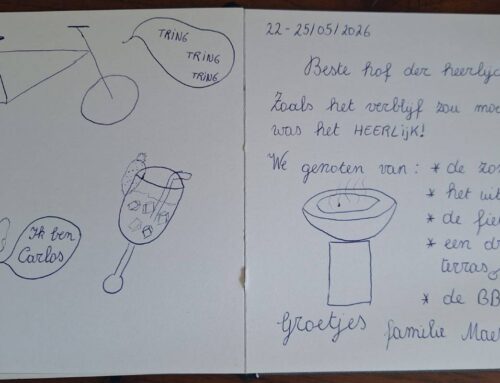 TRING
TRING
TRING
Ik ben
Carlos
22 - 25/05/2026
Beste hof der
Zoals het verblijf zou
was het HEERLIJK!
We genoten van : * de
* het
* de
* een
terras
* de
Groetjes familie